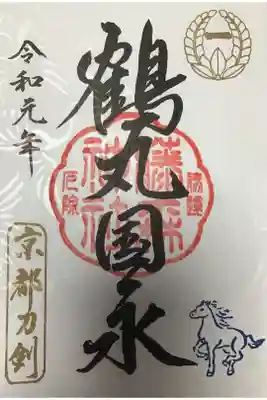 一
鶴丸国永
令和元年
京都刀剣
藤森神社
厄除